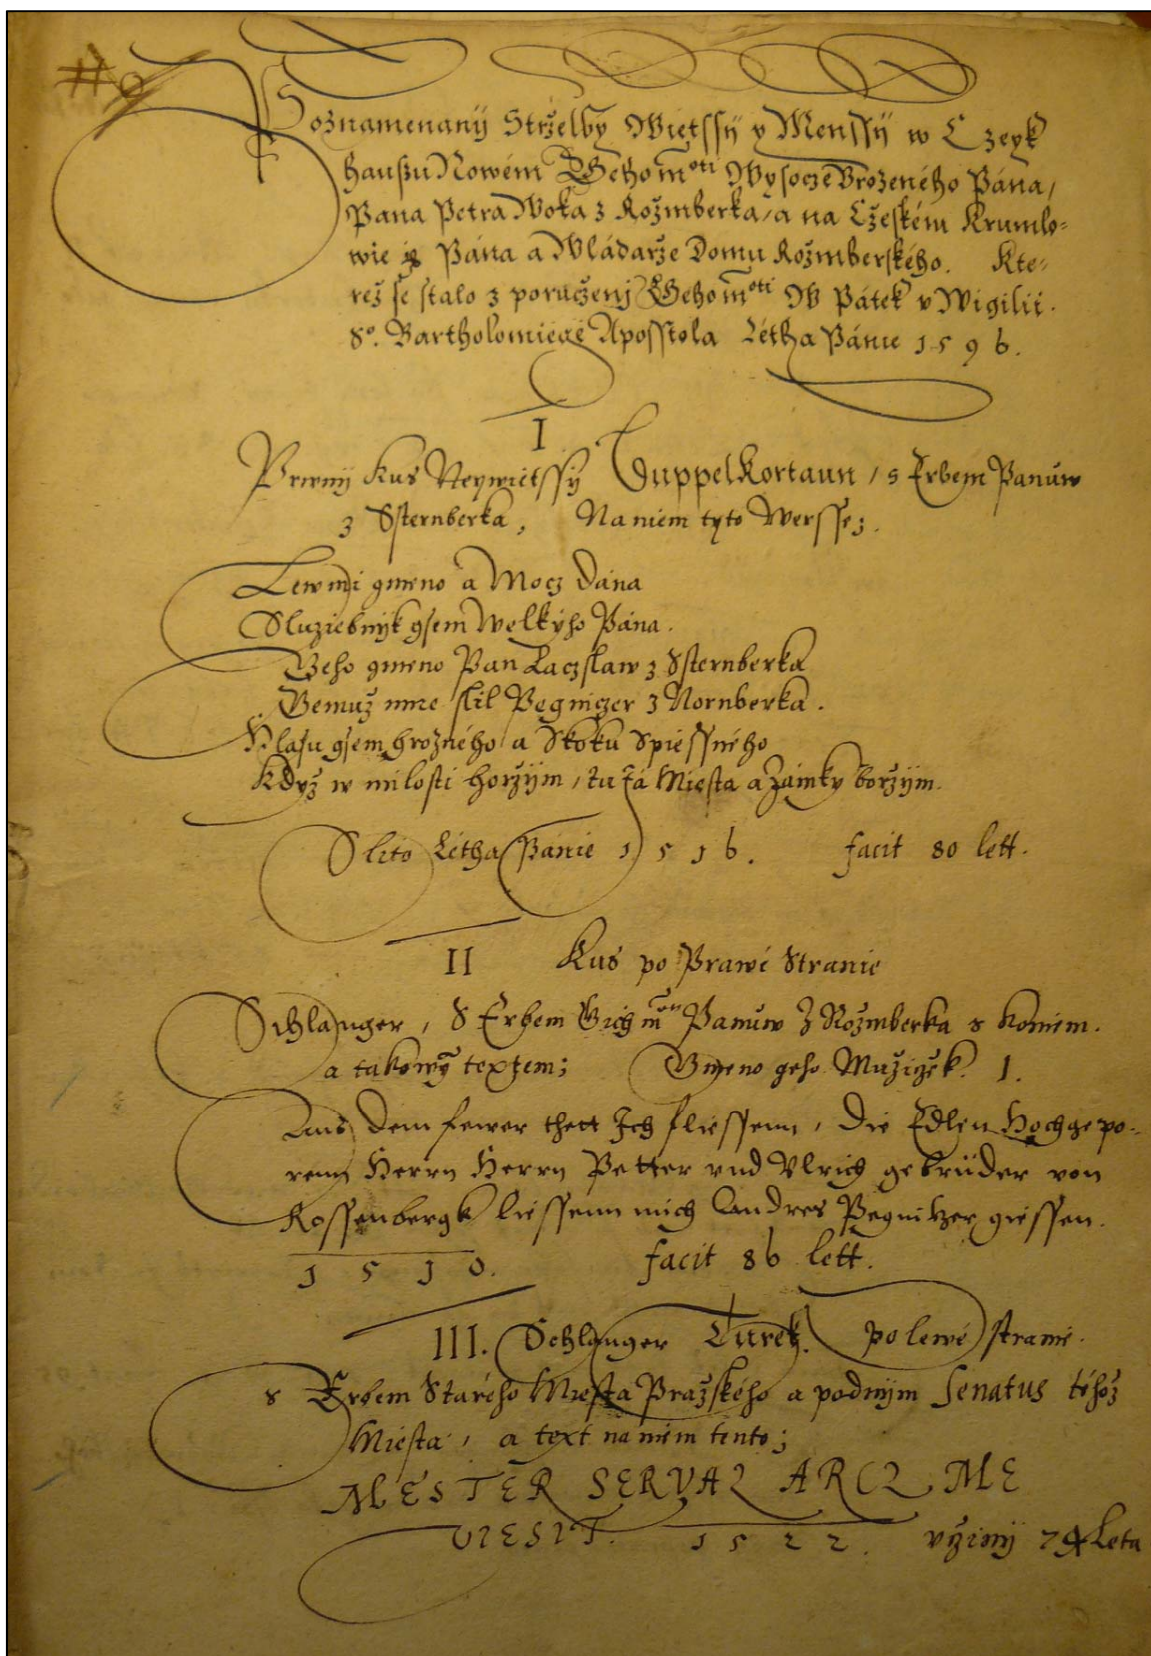 Poznamenanij Strżelby Wietssij y Menssij w Czeyk
haußu Nowém Gehomᵒᵗⁱ Wysocze Vrozeného Pána,
Pana Petra Woka z Rożmberka, a na Cżeském Krumlo-
wie Pána a Wládarże Domu Rożmberského. Kte-
réż se stalo z porucżenj Gehomᵒᵗⁱ W Pátek v Wigilii
Sº. Bartholomiege Aposstola Létha Pánie 1596.
I
Prwnij Kus Neywietssÿ Duppel Kortaun, s Erbem Panúw
z Ssternberka, Na niem tyto Wersse;
Lew mi gmeno a Mocz dána
Sluziebnÿk gsem Welkýho Pána.
Geho gmeno Pan Laczslaw z Ssternberka
Gemuż mne slil Pegniczer z Nornberka.
Hlasu gsem hrozného a Skoku Spiessného
Kdyż w milosti horżÿm, tu ta Miesta a Zámky borżÿm.
Slito Létha Pánie 1516. facit 80 lett.
II Kus po Prawé Stranie
Schlanger, S Erbem Gich mᵗⁱ Panúw Z Rożmberka s koniem.
a takowẏ textem; Gmeno geho Mużiżék. 1.
Aus dem fewer thett Ich fliessenn, Die Edlen Hochgepo-
renn Herrn Herrn Petter vnd Vlrich gebrüder von
Rossenbergk liessenn mich Andres Pegnitzer giessen.
1510. facit 86 lett.
III. Schlanger Turek. po lewé stranie.
s Erbem Starého Miesta Prażského a pod nijm Senatus téhoż
Miesta, a text na niem tento;
MESTER SERVAZ ARCZ ME
VIESIT. 1522. vżinij 74 Leta